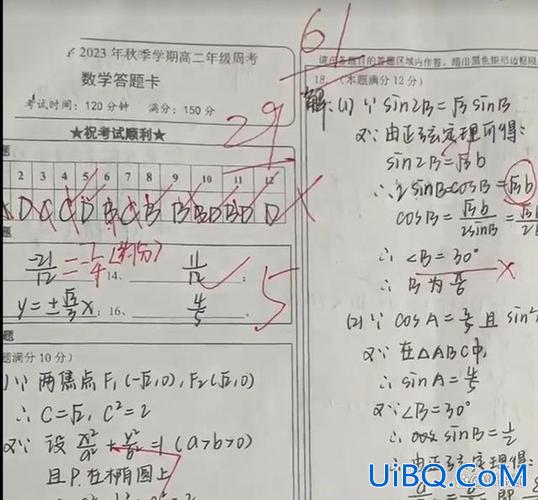 2023 年秋季学期高二年级周考
数学答题卡
考试时间：120 分钟 满分：150 分
★祝考试顺利★
29
题
2 3 4 5 6 7 8 9 10 11 12
D C C D B C B B BD BD D
题
-21/12 = -7/4 (约分) 14、 11/12
y=±√3/3x; 16、 4/5
5
题
题满分 10 分)
∵ 两焦点 F₁(-√2,0), F₂(√2,0)
∴ C=√2, C²=2
又∵ 设 x²/a² + y²/b² =1 (a>b>0)
且 P 在椭圆上
61
请在各题目的答题区域内作答，超出黑色矩形边框限
18、(本题满分 12 分)
解: (1) ∵ sin2B=√3 sinB
又∵ 由正弦定理可得:
sin2B=√3b
∴ 2sinBcosB=√3b
cosB= √3b/2sinB =
∴ ∠B=30°
∴ B为 π/6
(2) ∵ cosA= 3/5 且 sin²
又∵ 在△ABC中,
∴ sinA= 4/5
又∵ ∠B=30°
∴ sinB= 1/2
∴ 由正弦定理得:
即
UiBQ.CoM